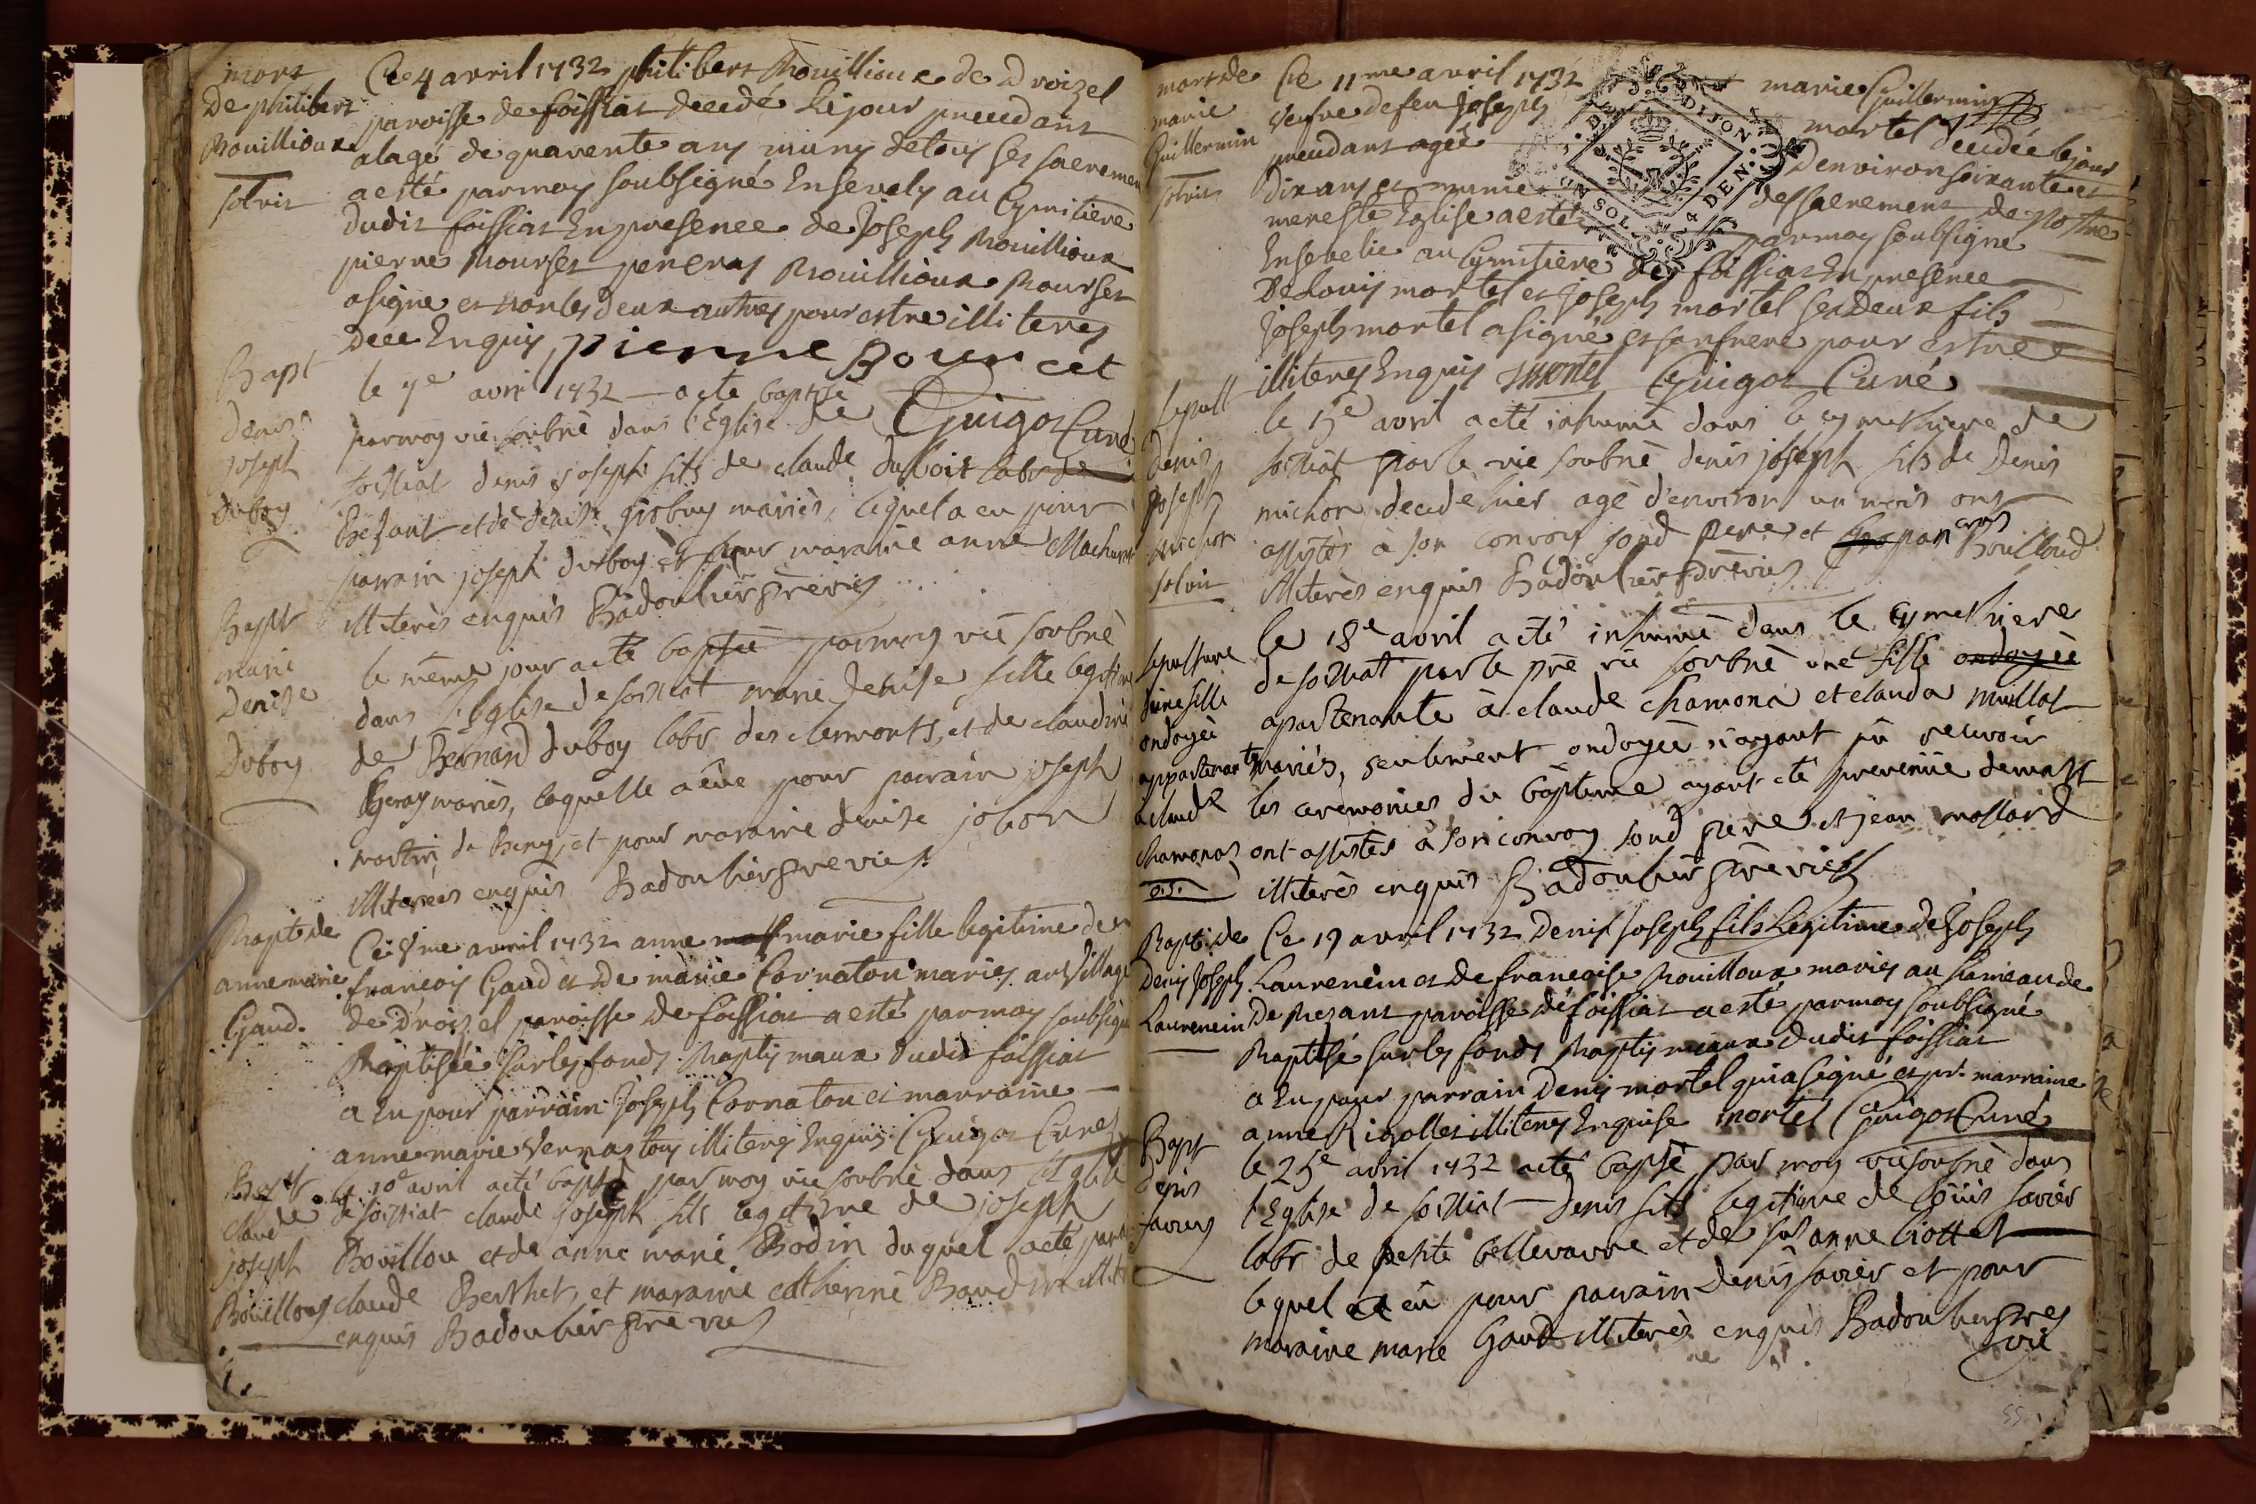 mort
De philibert
Bouillioux
solvit
Ce 4 avril 1732 philibert Bouillioux de Droizel
paroisse de foissiat decedé le jour precedant
alagé de quarente ans muny de tous ses sacremen
a esté par moy soubsigné Ensevely au Cymitiere
dudit foissiat En presence de Joseph Bouillioux
pierre Bourset peneray Bouillioux Bourset
a signe et non les deux autres pour estre illiteres
de ce Enquis pierre Bourcet
Guigot Curé
Bapt
denis
joseph
duboy
le 7e avril 1732 — a eté baptisé
par moy vic soubné dans l'Eglise de
foissiat denis joseph fils de claude duboit labr de
Bezant et de denise grobuy mariés, lequel a eu pour
parrain joseph duboy et pour maraine anne Machure
illiterés enquis Badoulier prêvic
Bapt
marie
Denise
Duboy
le même jour a eté baptisé par moy vic soubné
dans l'Eglise de foissiat marie denise fille legitime
de Bernard duboy labr des clermonts, et de claudine
Beray mariés, laquelle a êue pour parain joseph
martin de Beny, et pour maraine denise jobon
illiterées enquis Badoulier previc
Bapt de
anne marie
Gaud.
Ce 8me avril 1732 anne marie fille legitime de
françois Gaud et De marie Cornaton mariés au village
de Droizel paroisse de foissiat a esté par moy soubsigné
Baptisée sur les fonds Baptismaux dudit foissiat
a Eu pour parrain Joseph Cornaton et marraine —
anne marie Vernas tous illiteres Enquis Guigot Curé
Bapt
claude
joseph
Bouilloux
le 10e avril a eté baptisé par moy vic soubné dans l'Eglise
de foissiat claude joseph fils legitime de joseph
Bouillou et de anne marie Bodin duquel a eté parain
claude Berthet, et maraine catherine Baudin illite
enquis Badoulier prê vic
mort de
marie
Guillermin
solvit
Ce 11me avril 1732 marie Guillermin
veufve de feu Joseph mortel decedée le jour
precedant agée D'environ soixante et
dix ans et munie des sacrement de Nostre
mere Ste Eglise a esté par moy soubsigne
Ensevelie au Cymitiere de foissiat En presence
De Louis mortel et Joseph mortel ses Deux fils
Joseph mortel a signé et son frere pour estre
illiteres Enquis mortel Guigot Curé
DE DIJON
UN SOL 4 DEN.
sepult
Denis
joseph
michon
solvit
le 15e avril a eté inhumé dans le cymethiere de
foissiat par le vic soubné denis joseph fils de Denis
michon decede hier agé d'environ un mois ont
assistés à son convoy sond pere et Bouilloud
illiterés enquis Badoulier prêvic
sepulture
d'une fille
ondoyée
appartenante
à claude
chamona
le 18e avril a eté inhumé dans le cymethiere
de foissiat par le prê vic soubné une fille ondoyée
apartenante à claude chamona et clauda muillat
mariés, seulement ondoyée n'ayant pû recevoir
les ceremonies du baptême ayant eté prevenüe de mort
ont assistés à son convoy sond pere et jean mollard
illiterés enquis Badoulier prê vic
Bapt: de
Denis Joseph
Laurencin
Ce 19 avril 1732 Denis Joseph fils Legitime de Joseph
Laurencin et de francoise Bouilloux mariés au hameau de
De Bezant paroisse de foissiat a esté par moy soubsigné
Baptisé sur les fonds Baptismaux dudit foissiat
a Eu pour parrain Denis mortel qui a signé et pr. marraine
anne Rigollet illiteres Enquise mortel Guigot Curé
Bapt
denis
savier
le 25e avril 1732 a eté baptisé par moy vic soubné dans
l'Eglise de foissiat — Denis fils legitime de Loüis savier
labr de petite bellevavre et de susanne liottet
lequel a eû pour parain denis savier et pour
maraine marie Gaud illiterés enquis Badoulier prê
vic
55